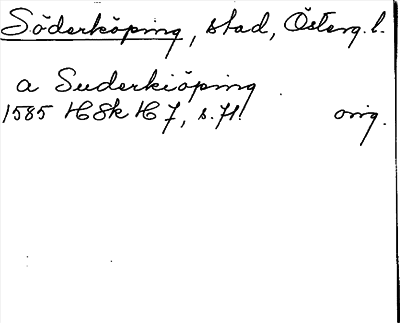 Söderköping, stad, Österg.l.
a Suderkiöping
1585 HSk H 7, s. 71. orig.